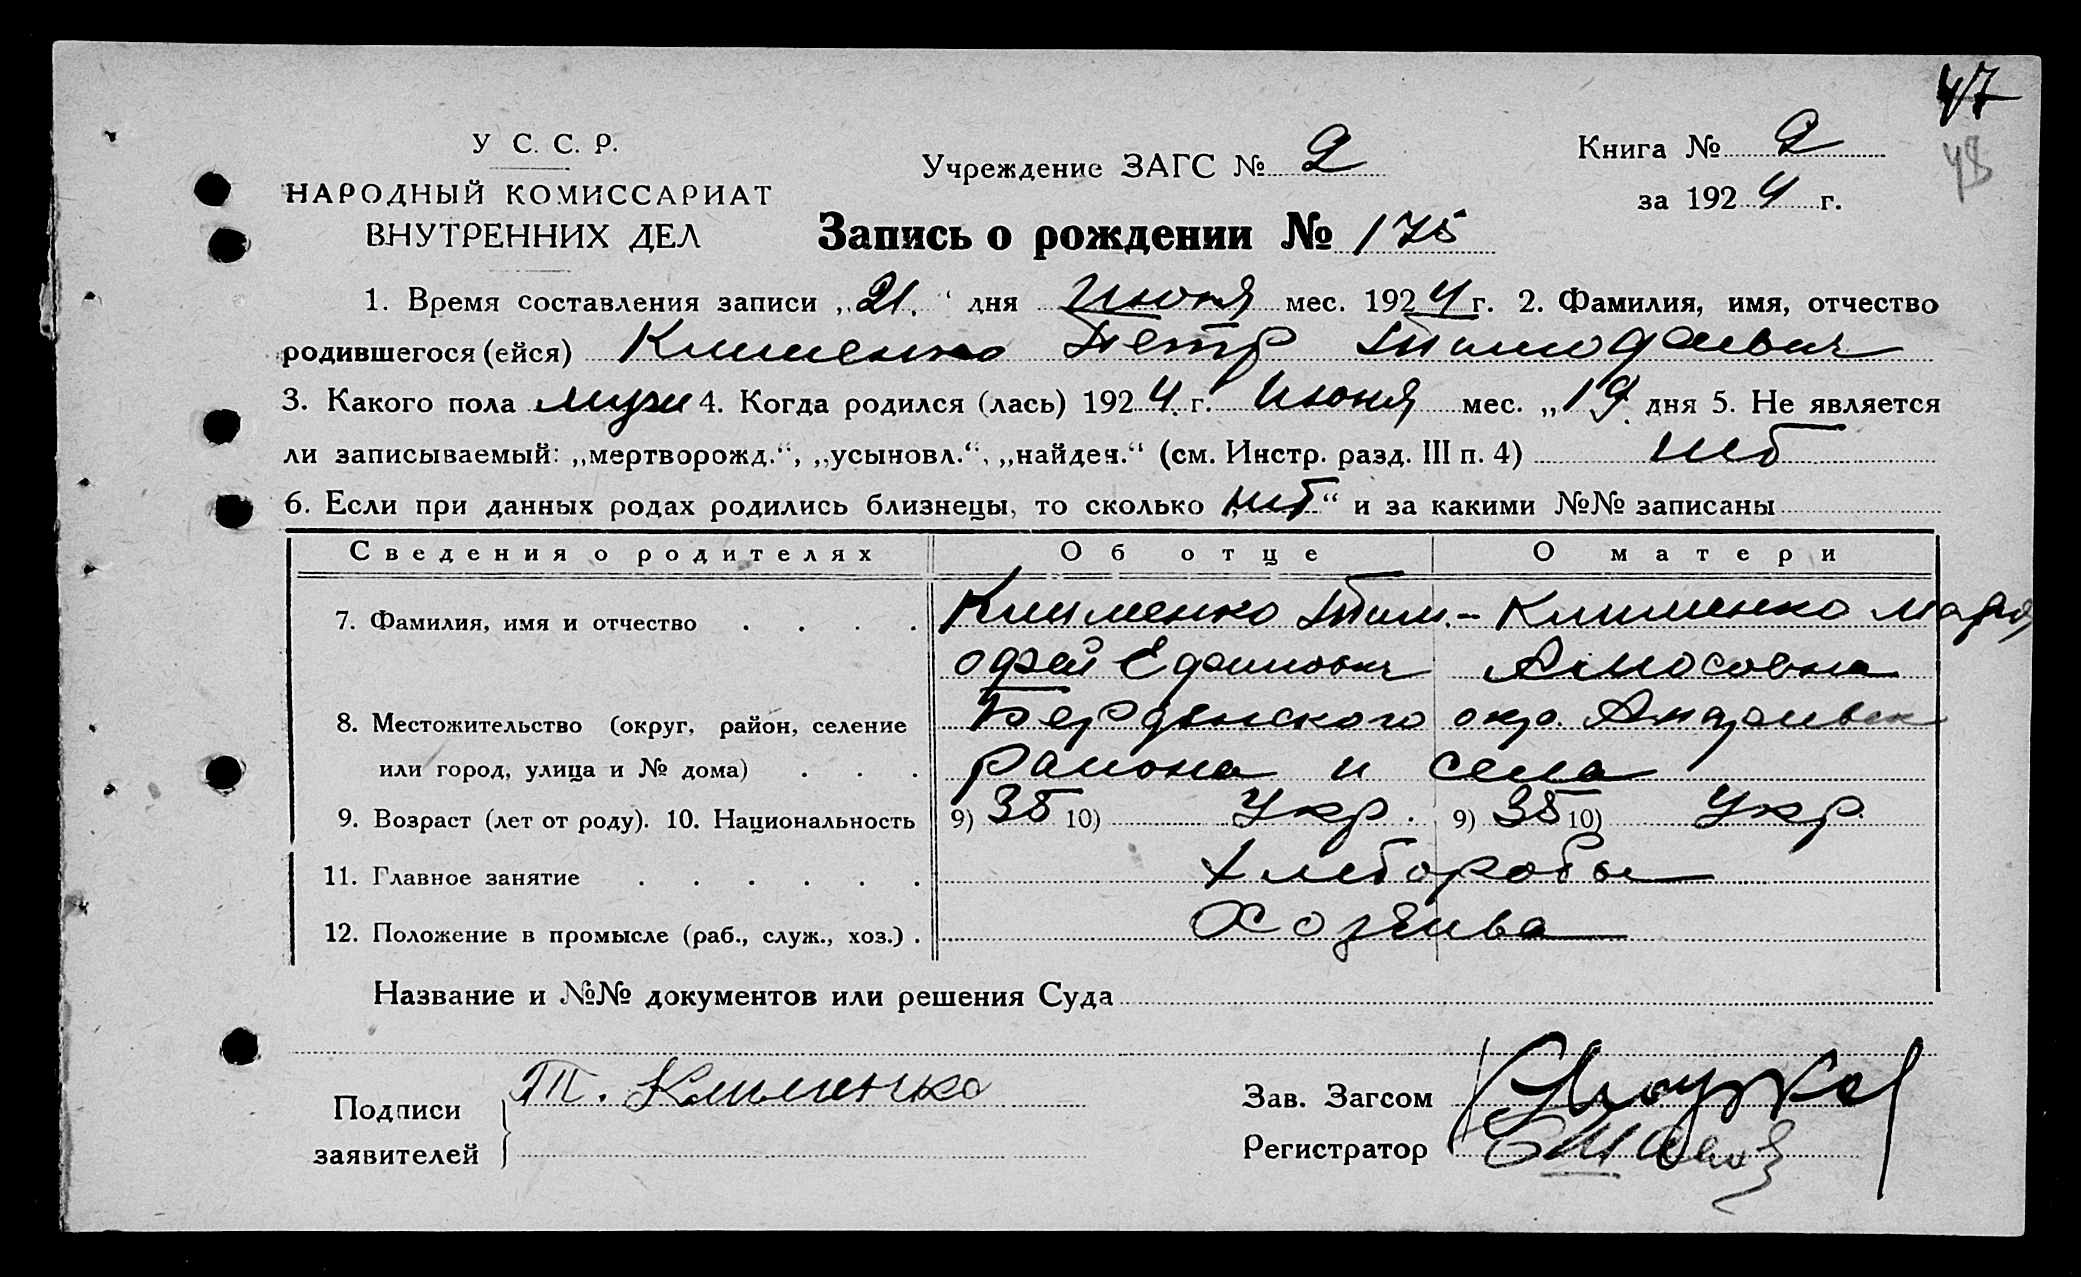 47
48
У С. С. Р.
НАРОДНЫЙ КОМИССАРИАТ
ВНУТРЕННИХ ДЕЛ
Учреждение ЗАГС № 2
Книга № 2
за 1924 г.
Запись о рождении № 175
1. Время составления записи „21“ дня Июня мес. 1924 г. 2. Фамилия, имя, отчество
родившегося (ейся) Клименко Петр Тимофеевич
3. Какого пола муж 4. Когда родился (лась) 1924 г. Июня мес. „19 дня 5. Не является
ли записываемый: „мертворожд.“, „усыновл.“, „найден.“ (см. Инстр. разд. III п. 4) нет
6. Если при данных родах родились близнецы, то сколько „нет“ и за какими №№ записаны
Сведения о родителях Об отце О матери
7. Фамилия, имя и отчество Клименко Тим- Клименко Мария
офей Ефимович Амосовна
8. Местожительство (округ, район, селение Бердянского окр. Андреевск
или город, улица и № дома) района и села
9. Возраст (лет от роду). 10. Национальность 9) 35 10) Укр. 9) 35 10) Укр.
11. Главное занятие Хлеборобы
12. Положение в промысле (раб., служ., хоз.) Хозяева
Название и №№ документов или решения Суда
Подписи
заявителей
Т. Клименко
Зав. Загсом
Регистратор